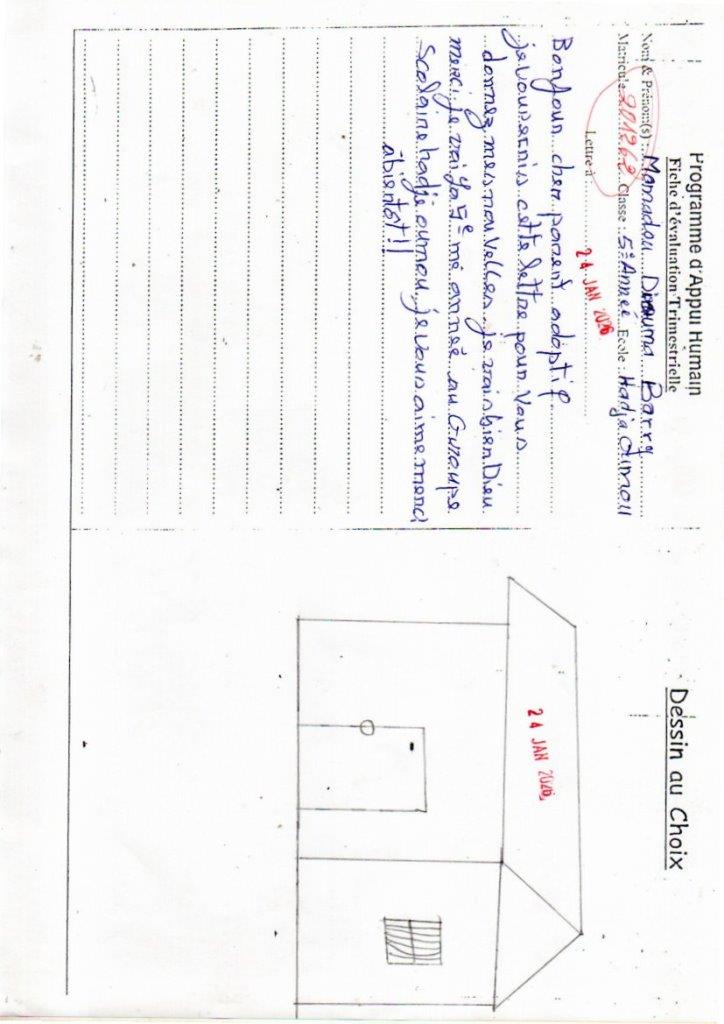 Programme d'Appui Humain
Fiche d'évaluation Trimestrielle
Nom & Prénom(s) : Mamadou Diouma Barry
Matricule 201268 Classe : 5e Année Ecole : Hadja Oumou
Lettre à :
24 JAN 2026
Bonjour cher parent adoptif
je vous ernis cette lettre pour vous
donnez mes nouvelles. je vais bien Dieu
merci. je vai ya 5e me année au Guroupe
Scolaire hadja oumou. je vous aime merci
àbientôt!!
Dessin au Choix
24 JAN 2026